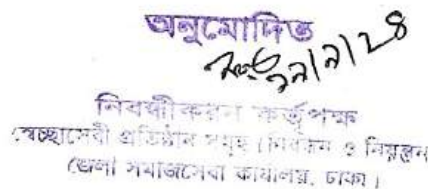 অনুমোদিত
নিবন্ধীকরণ কর্তৃপক্ষ
স্বেচ্ছাসেবী প্রতিষ্ঠান সমূহ (নিবন্ধন ও নিয়ন্ত্রন
জেলা সমাজসেবা কার্যালয়, ঢাকা।